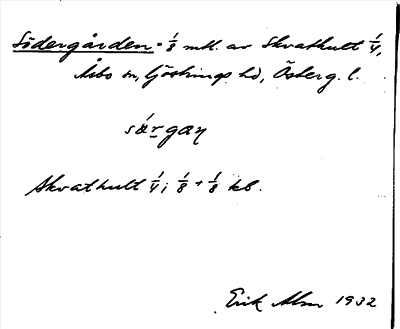 Södergården = 1/8 mtl. av Skvathult 1/4,
Åsbo sn, Göstrings hd, Österg. l.
Skvathult 1/4; 1/8 + 1/8 kl.
Erik Alm 1932